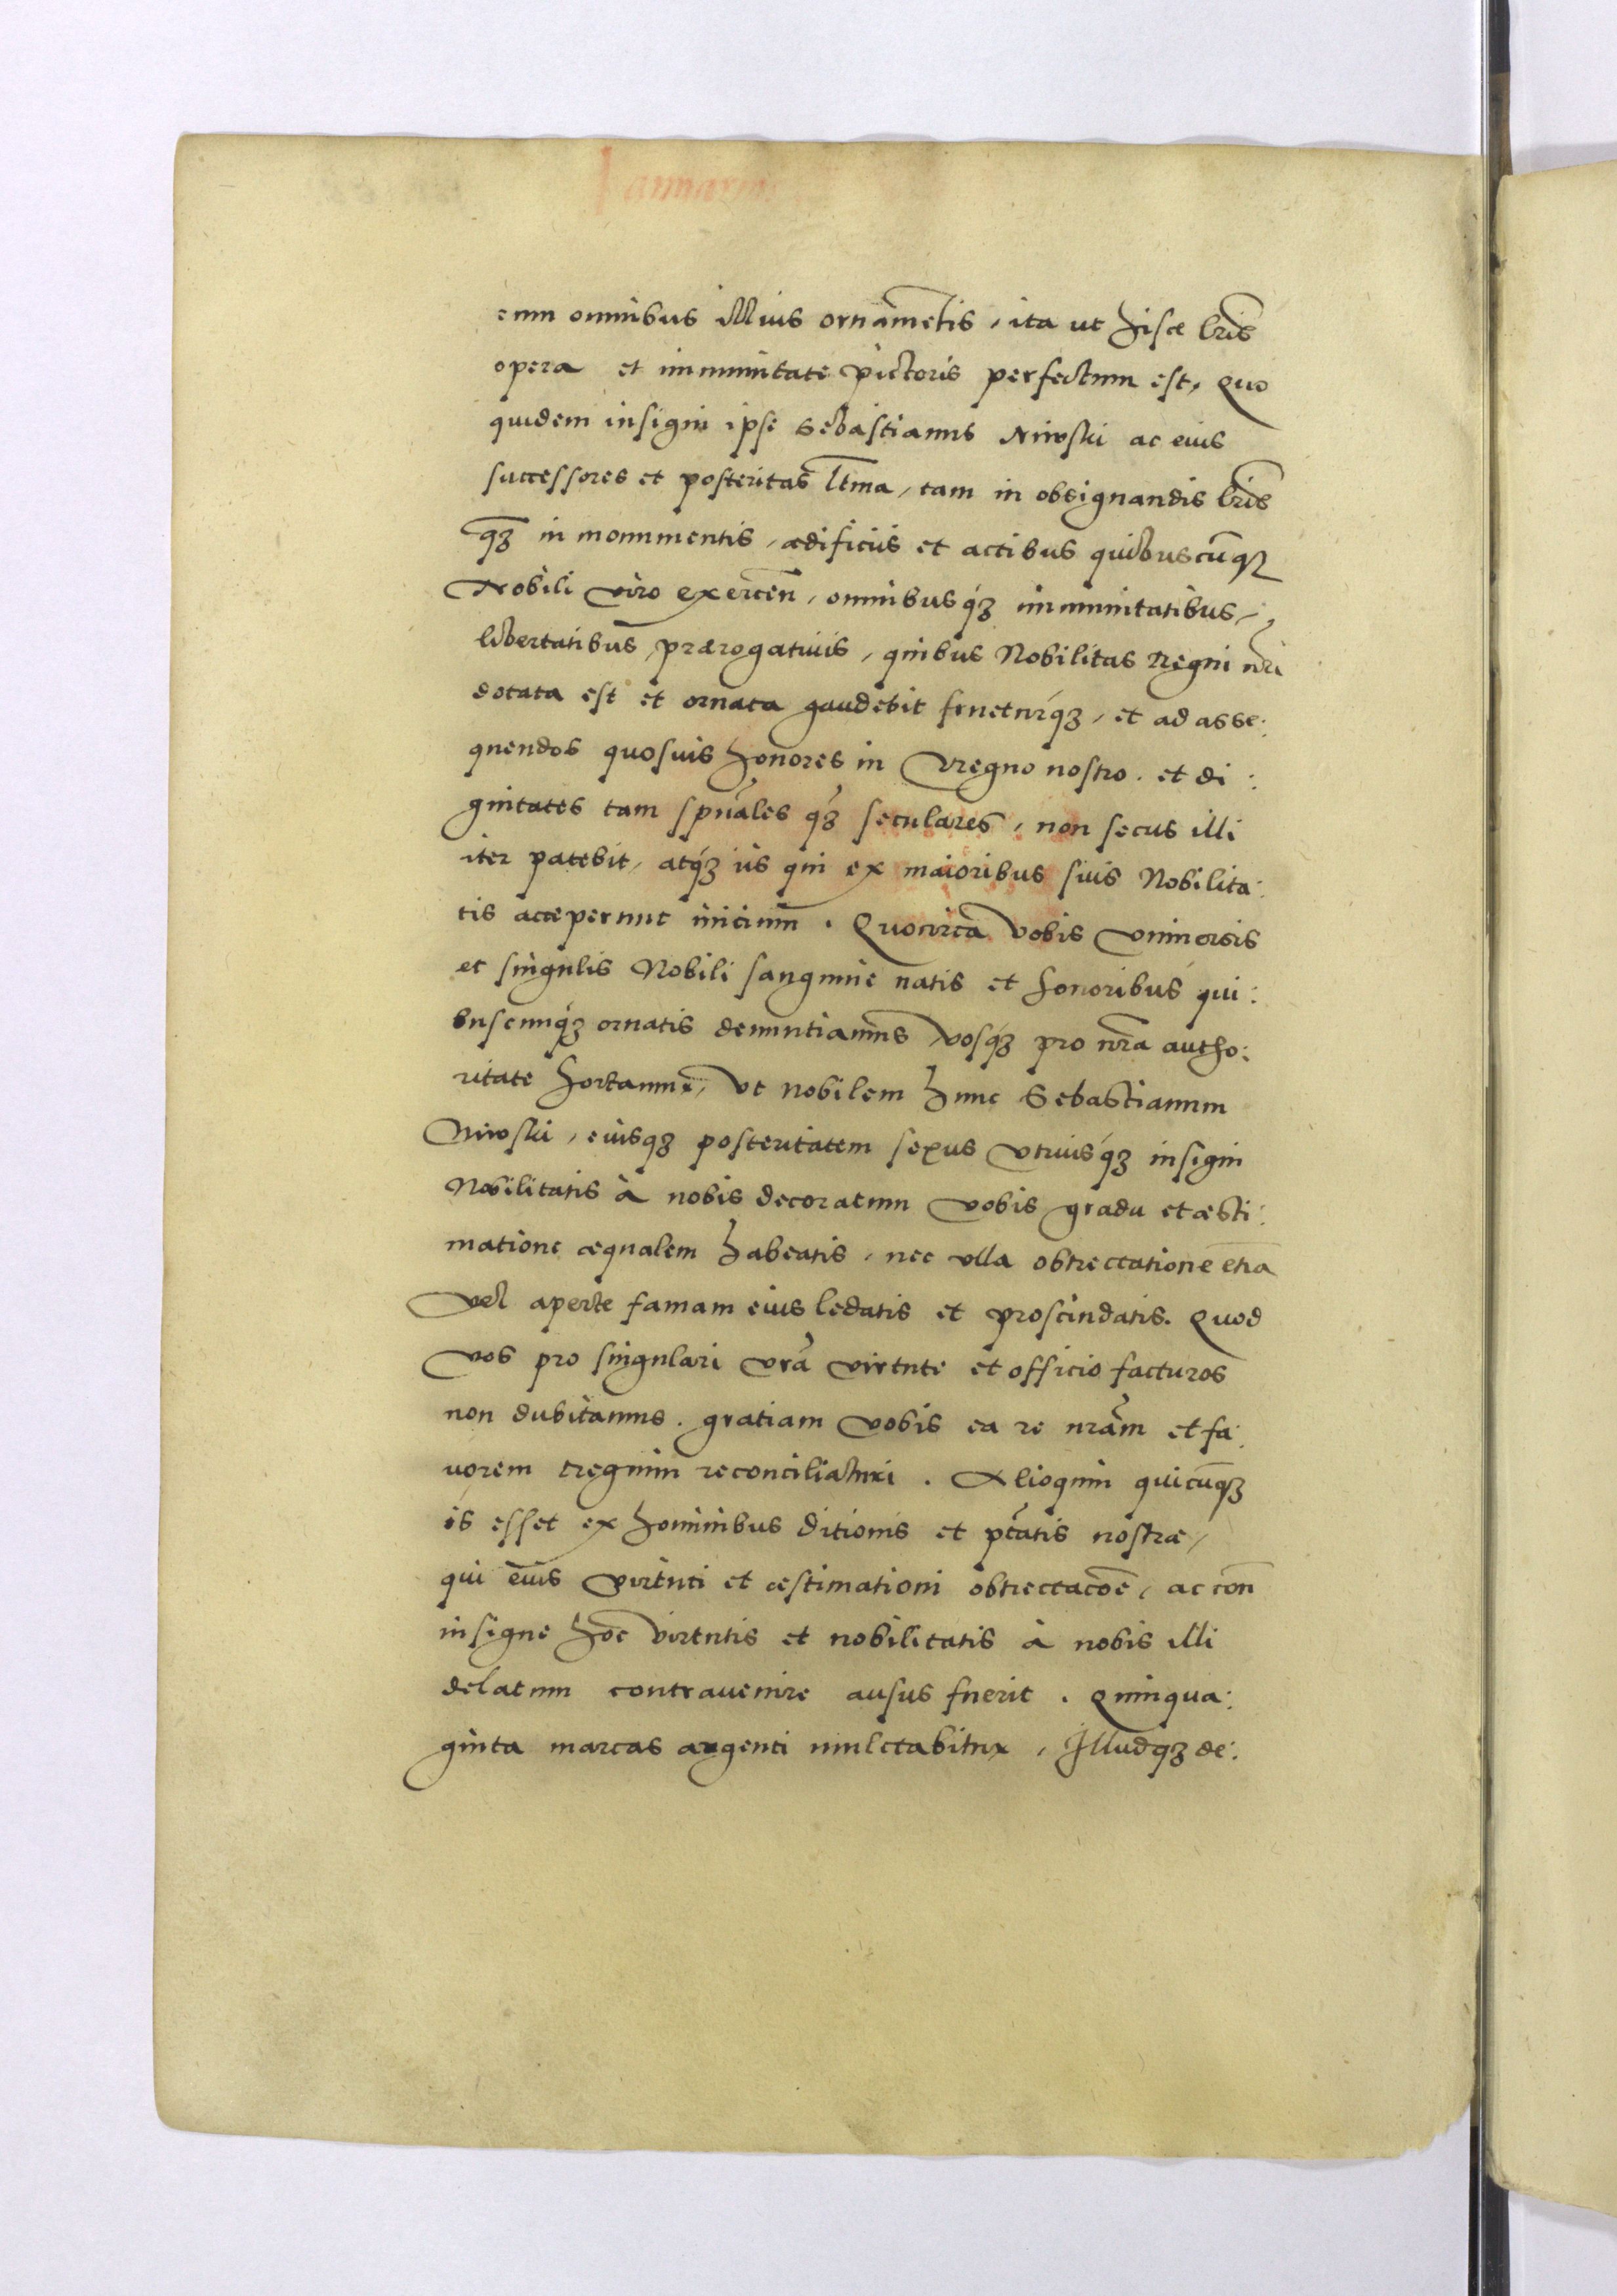 Januariu
cum omnibus illius ornametis, ita ut hisce lr̃is
opera et immunitate pictoris perfectum est, Quo
quidem insigni ipse Sebastianus Niroski ac eius
successores et posteritas ltma, tam in obsignandis lr̃is
q̃z in monumentis, ædificiis et actibus quibuscũqz
Nobili viro exercen̄, omnibusqz immunitatibus,
libertatibus, prærogativis, quibus Nobilitas Regni nr̃i
dotata est et ornata gaudebit frueturqz, et ad asse:
quendos quosvis honores in Regno nostro. et di:
gnitates tam spũales q̃z seculares, non secus illi
iter patebit, atqz iis qui ex maioribus suis Nobilita:
tis acceperunt inicium. Quocirca vobis vniuersis
et singulis Nobili sanguine natis et honoribus qui:
buscunqz ornatis denuntiamus vosqz pro nr̃a autho:
ritate hortamur, vt nobilem hunc Sebastianum
Niroski, eiusqz posteritatem sexus vtriusqz insigni
Nobilitatis à nobis decoratum vobis gradu et æsti:
matione æqualem habeatis, nec vlla obtrectatione etiã
vel aperte famam eius ledatis et proscindatis. Quod
vos pro singulari vr̃a virtute et officio facturos
non dubitamus. gratiam vobis ea re nr̃am et fa:
uorem regnum reconciliaturi. Alioquin quicũqz
is esset ex hominibus ditionis et ptãtis nostræ,
qui eius virtuti et æstimationi obtrectacõe, ac con̄
insigne hoc virtutis et nobilitatis à nobis illi
delatum contravenire ausus fuerit. Quinqua:
ginta marcas argenti mulctabitur, Illudqz de: